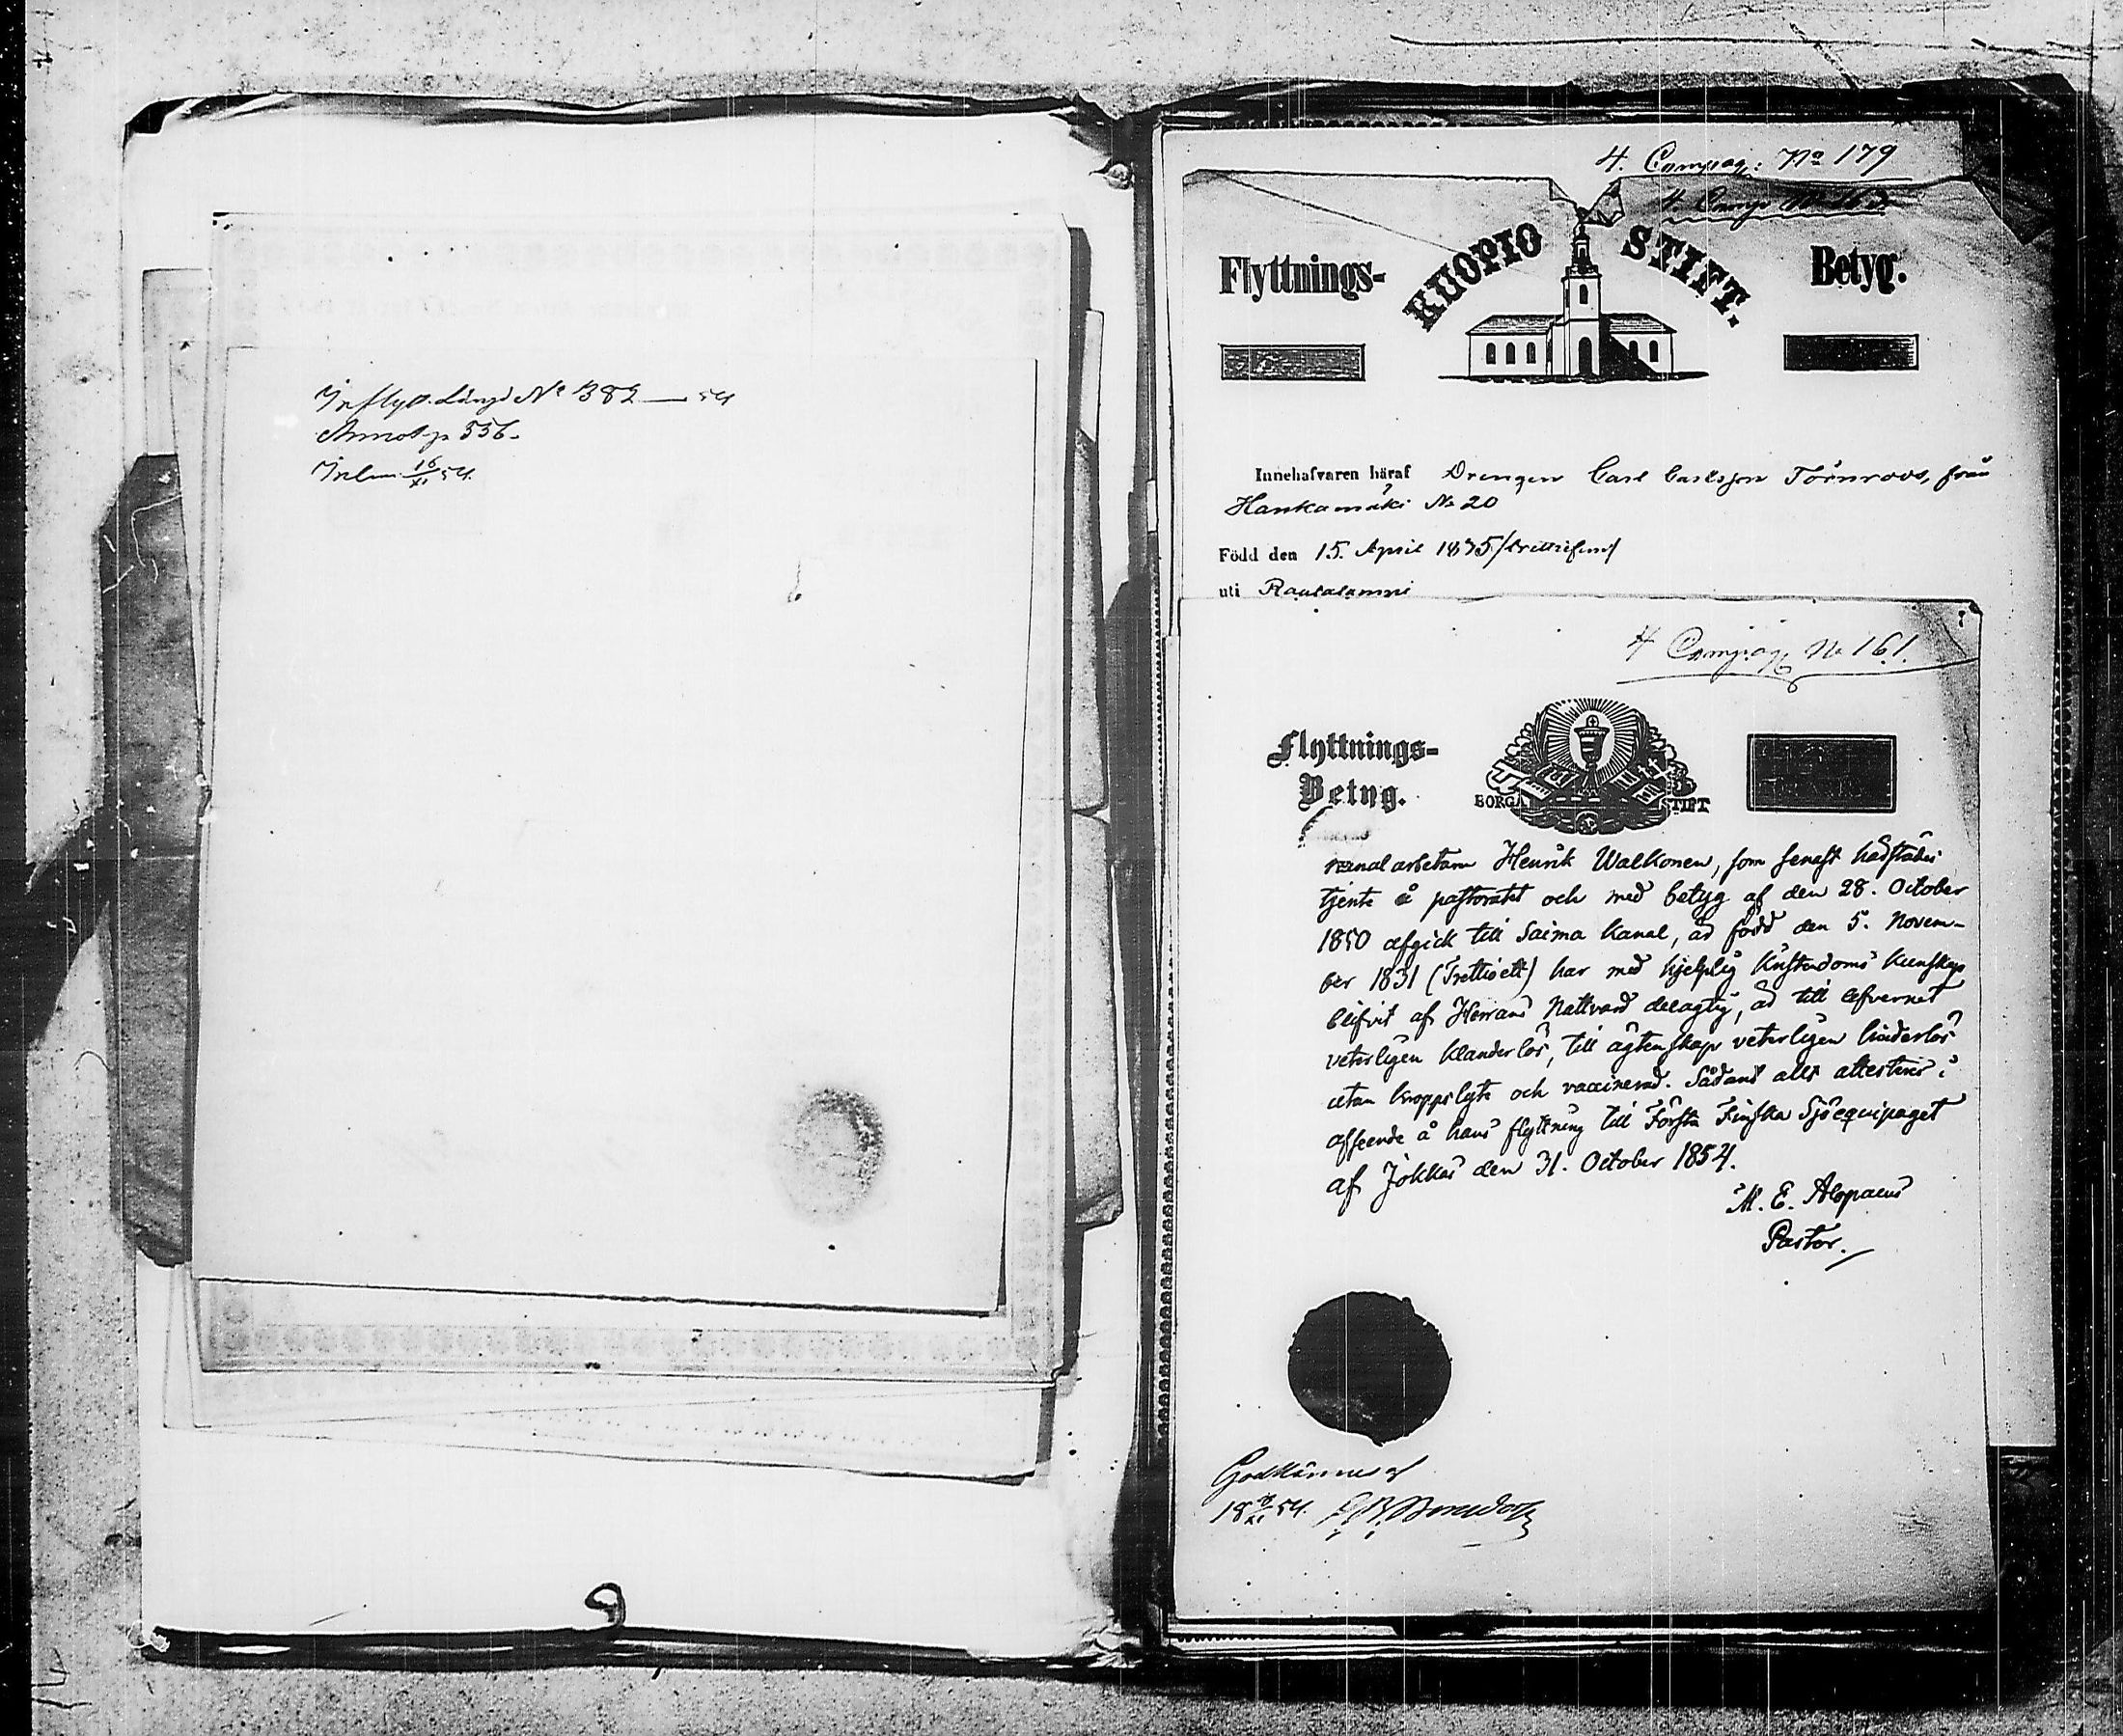 Inflytt. Längd No 382 — 54
Annot. p 336.
Inlem 16/XI 54.
4. Compag: No 179
Flyttnings-
KUOPIO STIFT.
Betyg.
Innehafvaren häraf Drengen Carl Carlsson Törnroos, från
Hankamäki No 20
Född den 15. April 1835 /trettifem/
uti Rautalampi
4 Compag No 161.
Flyttnings-
Betyg.
BORGÅ STIFT
Kanalarbetaren Henrik Walkonen, som senast härstädes
tjente å pastoratet och med betyg af den 28. October
1850 afgick till Saima Kanal, är född den 5. Novem-
ber 1831 (Trettioett) har med hjelplig Kristendoms kunskap
blifvit af Herrans Nattvard delagtig, är till lefvernet
veterligen klanderlös, till ägtenskap veterligen hinderlös
utan kroppslyte och vaccinerad. Sådant allt attesteras i
afseende å hans flyttning till Första Finska Sjöequipaget
af Jokkas den 31. October 1854.
M. E. Alopaeus
Pastor.
Godkännes af
18 54.